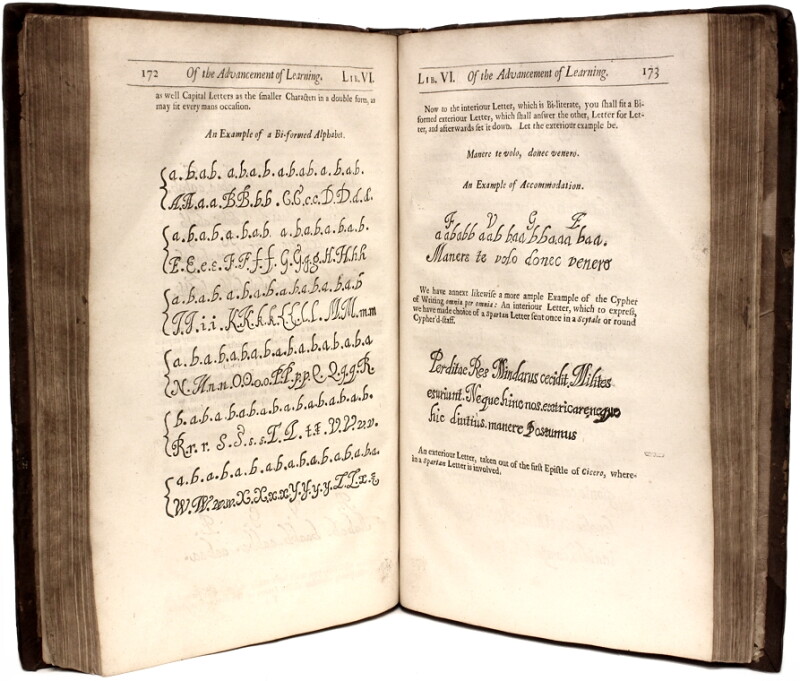 172 Of the Advancement of Learning. LIB. VI.
as well Capital Letters as the smaller Characters in a double form, as
may fit every mans occasion.
An Example of a Bi-formed Alphabet.
a. b. a. b. a. b. a. b. a. b. a. b. a. b. a. b.
A. A. a. a. B. B. b. b. C. C. c. c. D. D. d. d.
a. b. a. b. a. b. a. b. a. b. a. b. a. b. a. b.
E. E. e. e. F. F. f. f. G. G. g. g. H. H. h. h.
a. b. a. b. a. b. a. b. a. b. a. b. a. b. a. b
I. I. i. i. K. K. k. k. L. L. l. l. M. M. m. m
a. b. a. b. a. b. a. b. a. b. a. b. a. b. a. b. a
N. N. n. n. O. O. o. o. P. P. p. p. Q. Q. q. q. R.
b. a. b. a. b. a. b. a. b. a. b. a. b. a. b.
R. r. r. S. S. s. s. T. T. t. t. V. V. v. v.
a. b. a. b. a. b. a. b. a. b. a. b. a. b. a. b.
W. W. w. w. X. X. x. x. Y. Y. y. y. Z. Z. z. z
LIB. VI. Of the Advancement of Learning. 173
Now to the interiour Letter, which is Bi-literate, you shall fit a Bi-
formed exteriour Letter, which shall answer the other, Letter for Let-
ter, and afterwards set it down. Let the exteriour example be.
Manere te volo, donec venero.
An Example of Accommodation.
F V G E
aababb aab baa bbaaa baa.
Manere te volo donec venero
We have annext likewise a more ample Example of the Cypher
of Writing omnia per omnia: An interiour Letter, which to express,
we have made choice of a Spartan Letter sent once in a Scytale or round
Cypher'd-staff.
Perditae Res Mindarus cecidit, Milites
esuriunt. Neque hinc nos extricare, neque
hic diutius manere Possumus
An exteriour Letter, taken out of the first Epistle of Cicero, where-
in a Spartan Letter is involved.